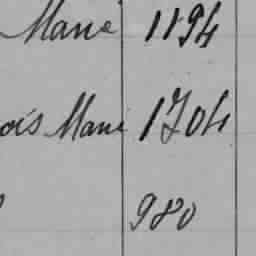 Marie 1194
ois Marie 1704
980